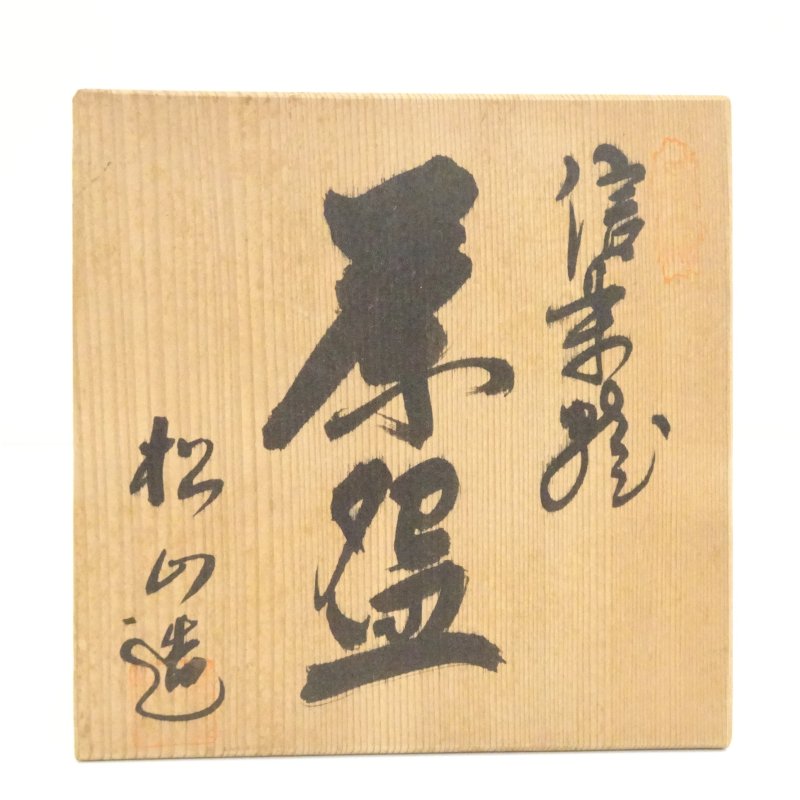 信楽焼
茶盌
松山造